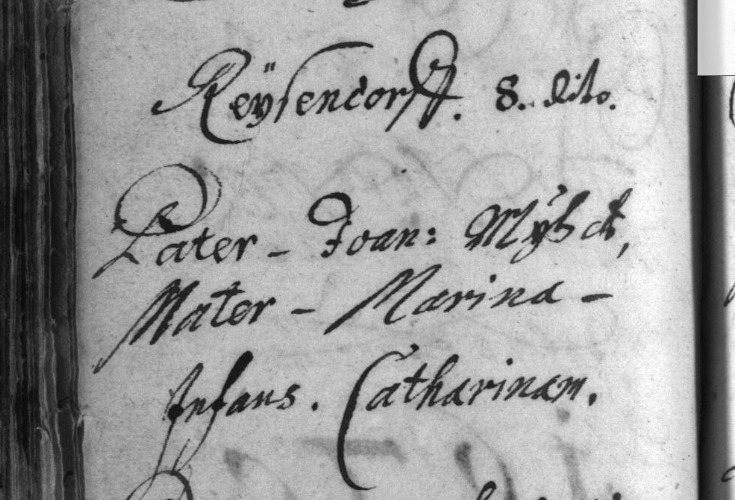 Reÿsendorff. 8. dito.
Pater - Joan: Mÿschk,
Mater - Marina -
Infans. Catharinam.